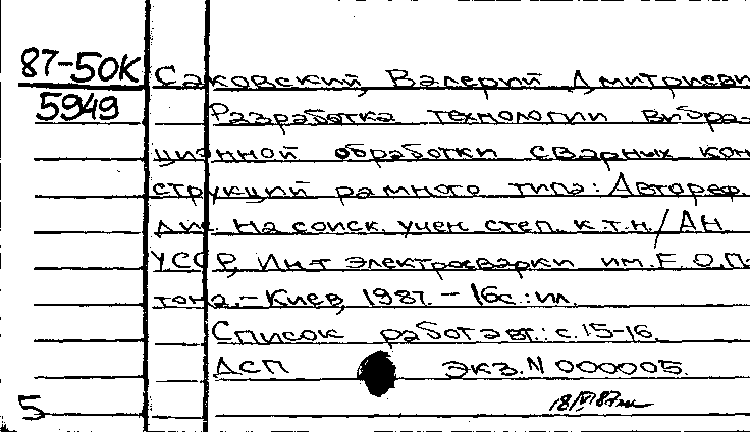 87-50К Саковский, Валерий Дмитриеви
5949 Разработка технологии вибра-
ционной обработки сварных кон
струкций рамного типа: Автореф.
дис. на соиск. учен. степ. к.т.н./АН
УССР, Ин-т электросварки им. Е.О.П
тона.-Киев, 1987. - 16с.:ил.
Список работ авт.: с.15-16.
ДСП Экз.N 000005.
5